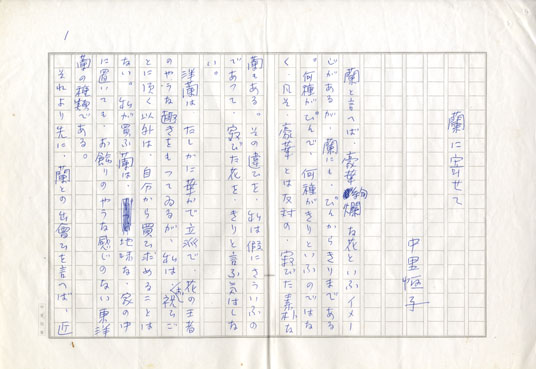 1
蘭に寄せて
中里恒子
蘭と言へば、豪華絢爛な花といふイメー
ジがあるが、蘭にも、ぴんからきりまである
。何種がぴんで、何種がきりといふのではな
く、凡そ、豪華とは反対の、寂びた素朴な
蘭もある。その違ひを、私は仮にさういふの
であつて、寂びた花を、きりと言ふ気はしな
い。
洋蘭は、たしかに華かで立派で、花の王者
のやうな趣きをもつてゐるが、私は、お祝ひご
とに頂く以外は、自分から買ひ求めることは
ない。私が買ふ蘭は、地味な、家の中
に置いても、お飾りのやうな感じのない東洋
蘭の種類である。
それより先に、蘭との出會ひを言へば、近